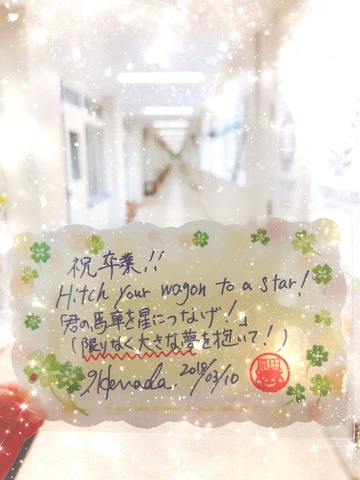 祝卒業!!
Hitch your wagon to a star!
「君の馬車を星につなげ!」
(限りなく大きな夢を抱いて!)
2018/03/10